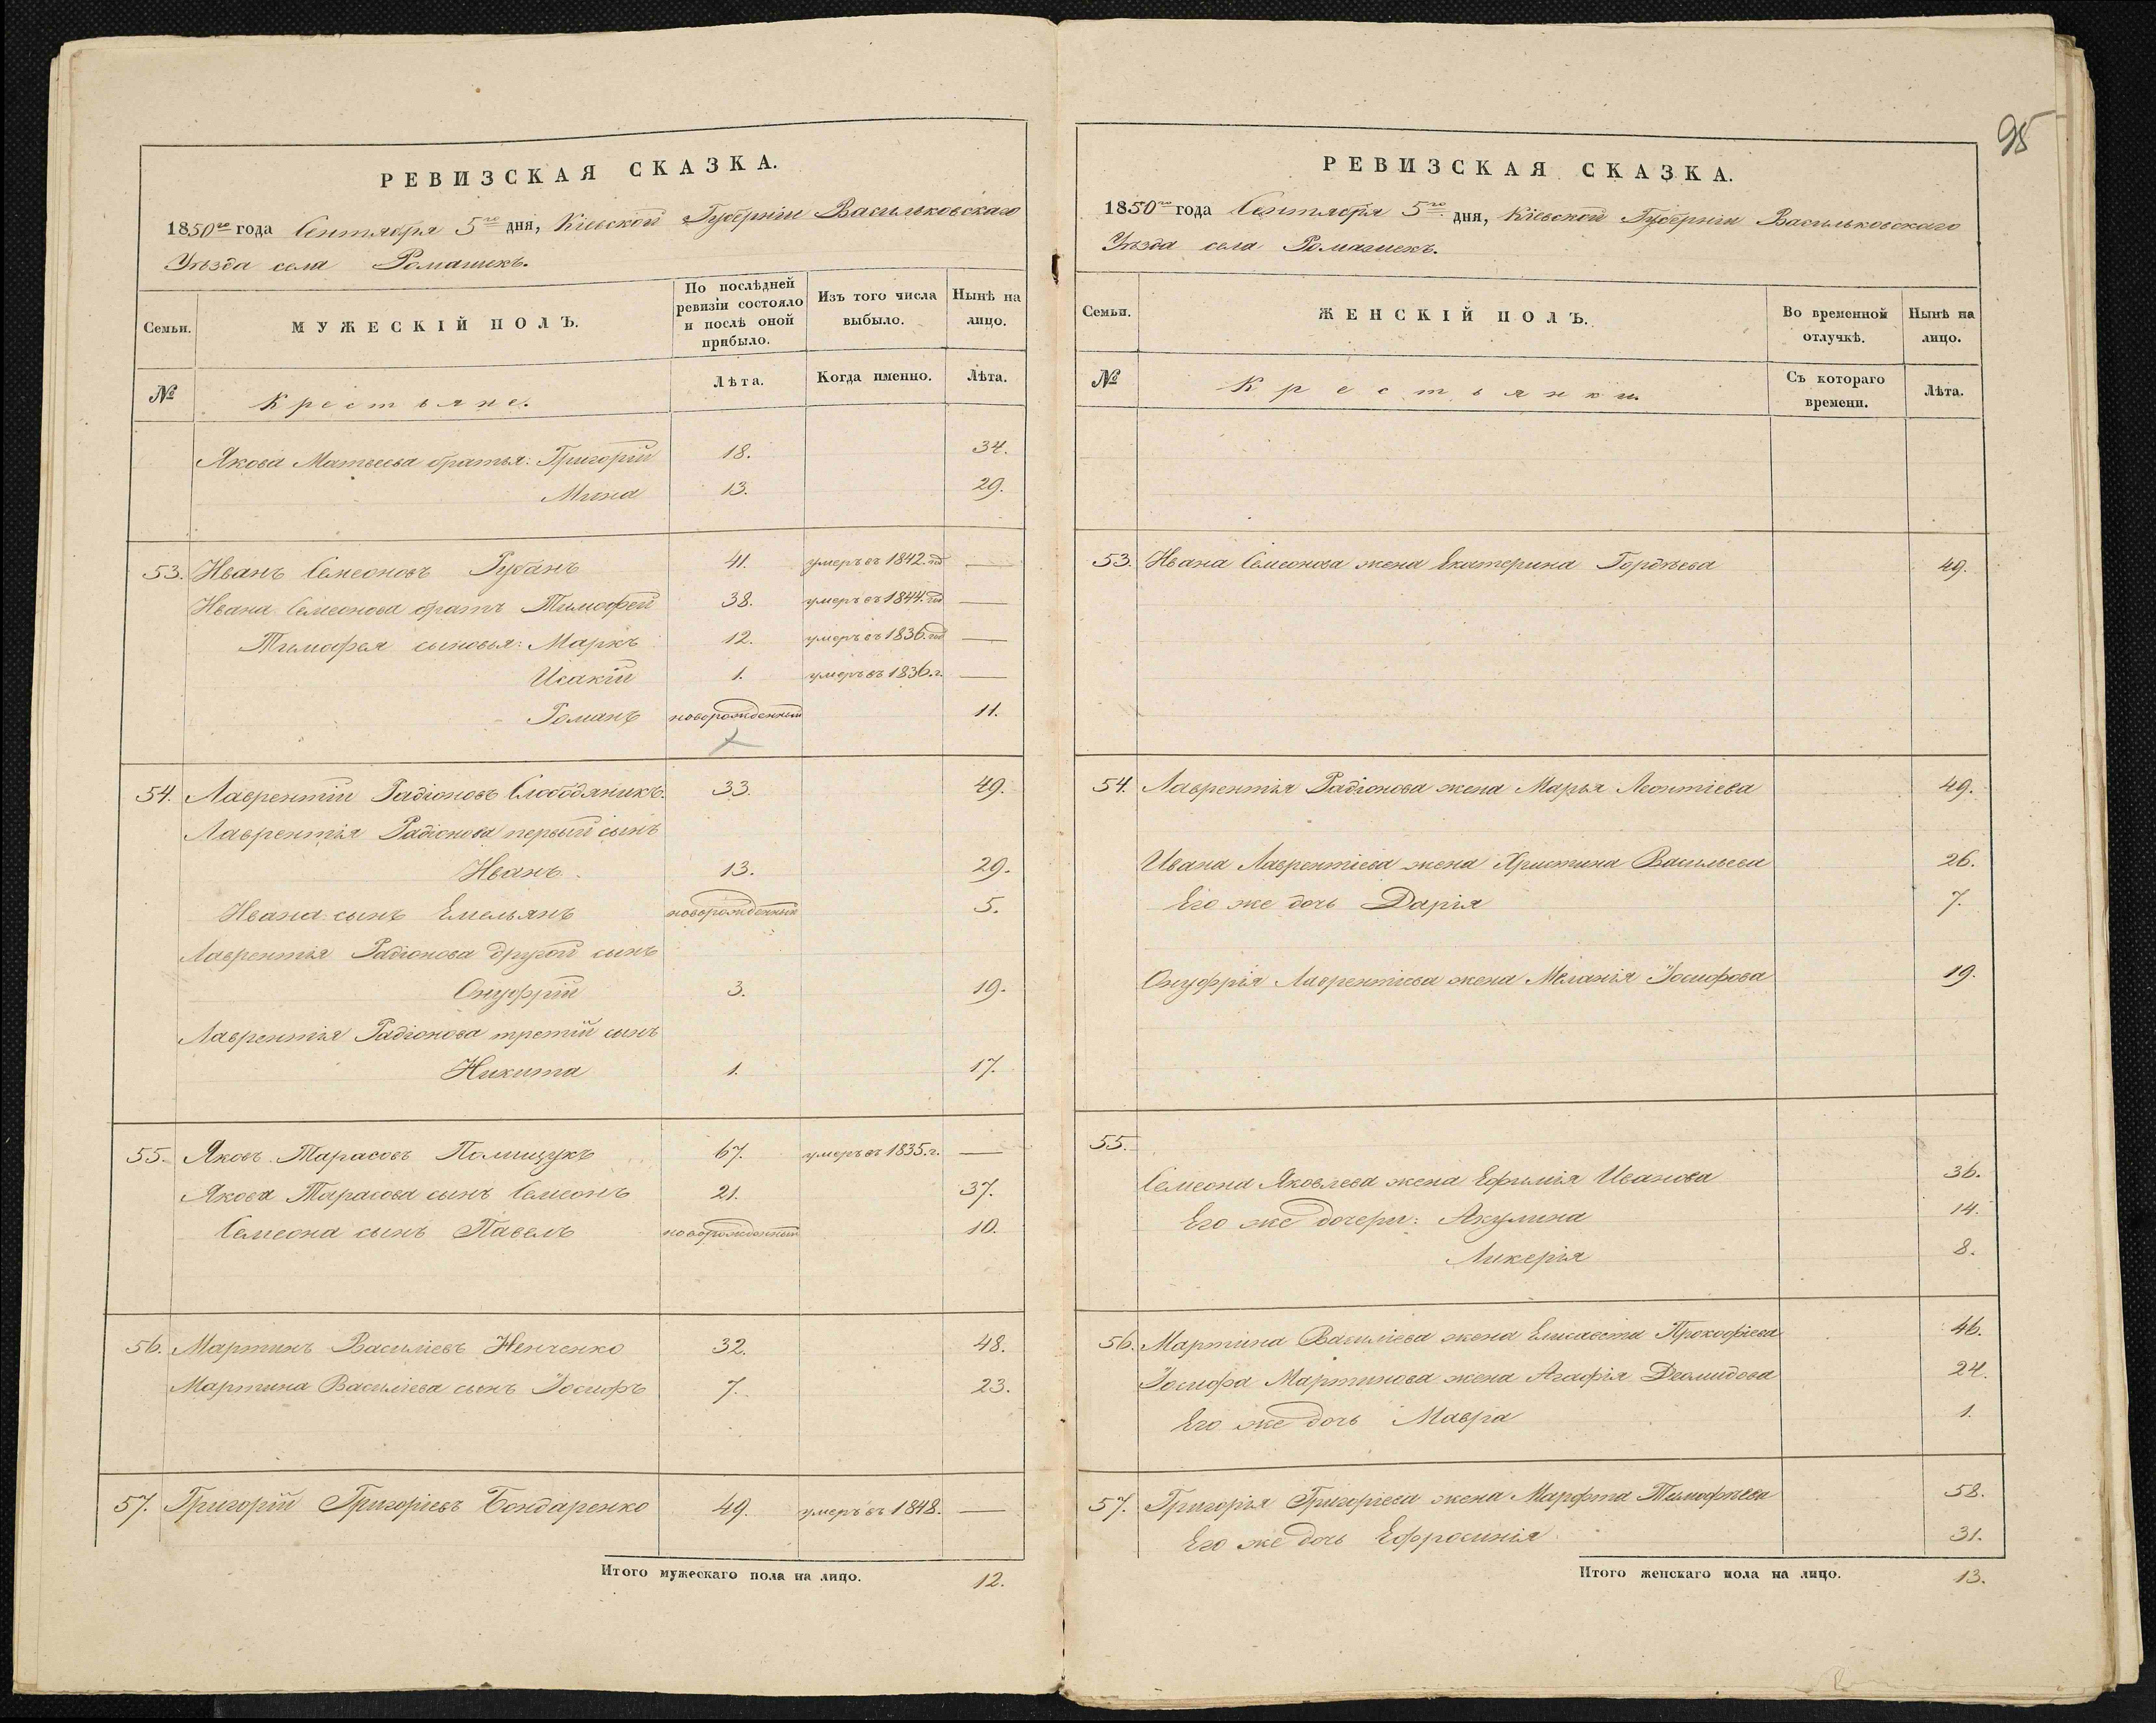 РЕВИЗСКАЯ СКАЗКА.
1850го года Сентября 5го дня, Кіевской Губерніи Васильковскаго
Уѣзда села Ромашекъ.
Семьи.
МУЖЕСКІЙ ПОЛЪ.
По послѣдней ревизіи состояло и послѣ оной прибыло.
Изъ того числа выбыло.
Нынѣ на лицо.
№
Крестьяне.
Лѣта.
Когда именно.
Лѣта.
Якова Матвеева братья: Григорій 18. 34.
Мина 13. 29.
53. Иванъ Семеновъ Рубанъ 41. умеръ въ 1842. год —
Ивана Семеонова братъ Тимофей 38. умеръ въ 1844. год —
Тимофея сыновья: Маркъ 12. умеръ въ 1836. год —
Исакій 1. умеръ въ 1836. г. —
Романъ новорожденный 11.
54. Лаврентій Радіоновъ Слободяникъ. 33. 49.
Лаврентія Радіонова первый сынъ
Иванъ 13. 29.
Ивана сынъ Емельянъ новорожденный 5.
Лаврентія Радіонова другой сынъ
Онуфрій 3. 19.
Лаврентія Радіонова третій сынъ
Никита 1. 17.
55. Яковъ Тарасовъ Полищукъ 67. умеръ въ 1835. г. —
Якова Тарасова сынъ Семеонъ 21. 37.
Семеона сынъ Павелъ новорожденный 10.
56. Мартинъ Василіевъ Ненченко 32. 48.
Мартина Василіева сынъ Іосифъ 7. 23.
57. Григорій Григоріевъ Бондаренко 49. умеръ въ 1848. —
Итого мужескаго пола на лицо. 12.
95
РЕВИЗСКАЯ СКАЗКА.
1850го года Сентября 5го дня, Кіевской Губерніи Васильковскаго
Уѣзда села Ромашекъ.
Семьи.
ЖЕНСКІЙ ПОЛЪ.
Во временной отлучкѣ.
Нынѣ на лицо.
№
Крестьянки.
Съ котораго времени.
Лѣта.
53. Ивана Семеонова жена Екатерина Гордѣева 49.
54. Лаврентія Радіонова жена Марья Леонтіева 49.
Ивана Лаврентіева жена Христина Васильева 26.
Его же дочь Дарія 7.
Онуфрія Лаврентіева жена Меланія Іосифова 19.
55.
Семеона Яковлева жена Ефимія Иванова 36.
Его же дочери: Акулина 14.
Ликерія 8.
56. Мартина Василіева жена Елисавета Прокофіева 46.
Іосифа Мартинова жена Агафія Диомидова 24.
Его же дочь Мавра 1.
57. Григорія Григоріева жена Марфта Тимофѣева 58.
Его же дочь Ефросинія 31.
Итого женскаго пола на лицо. 13.